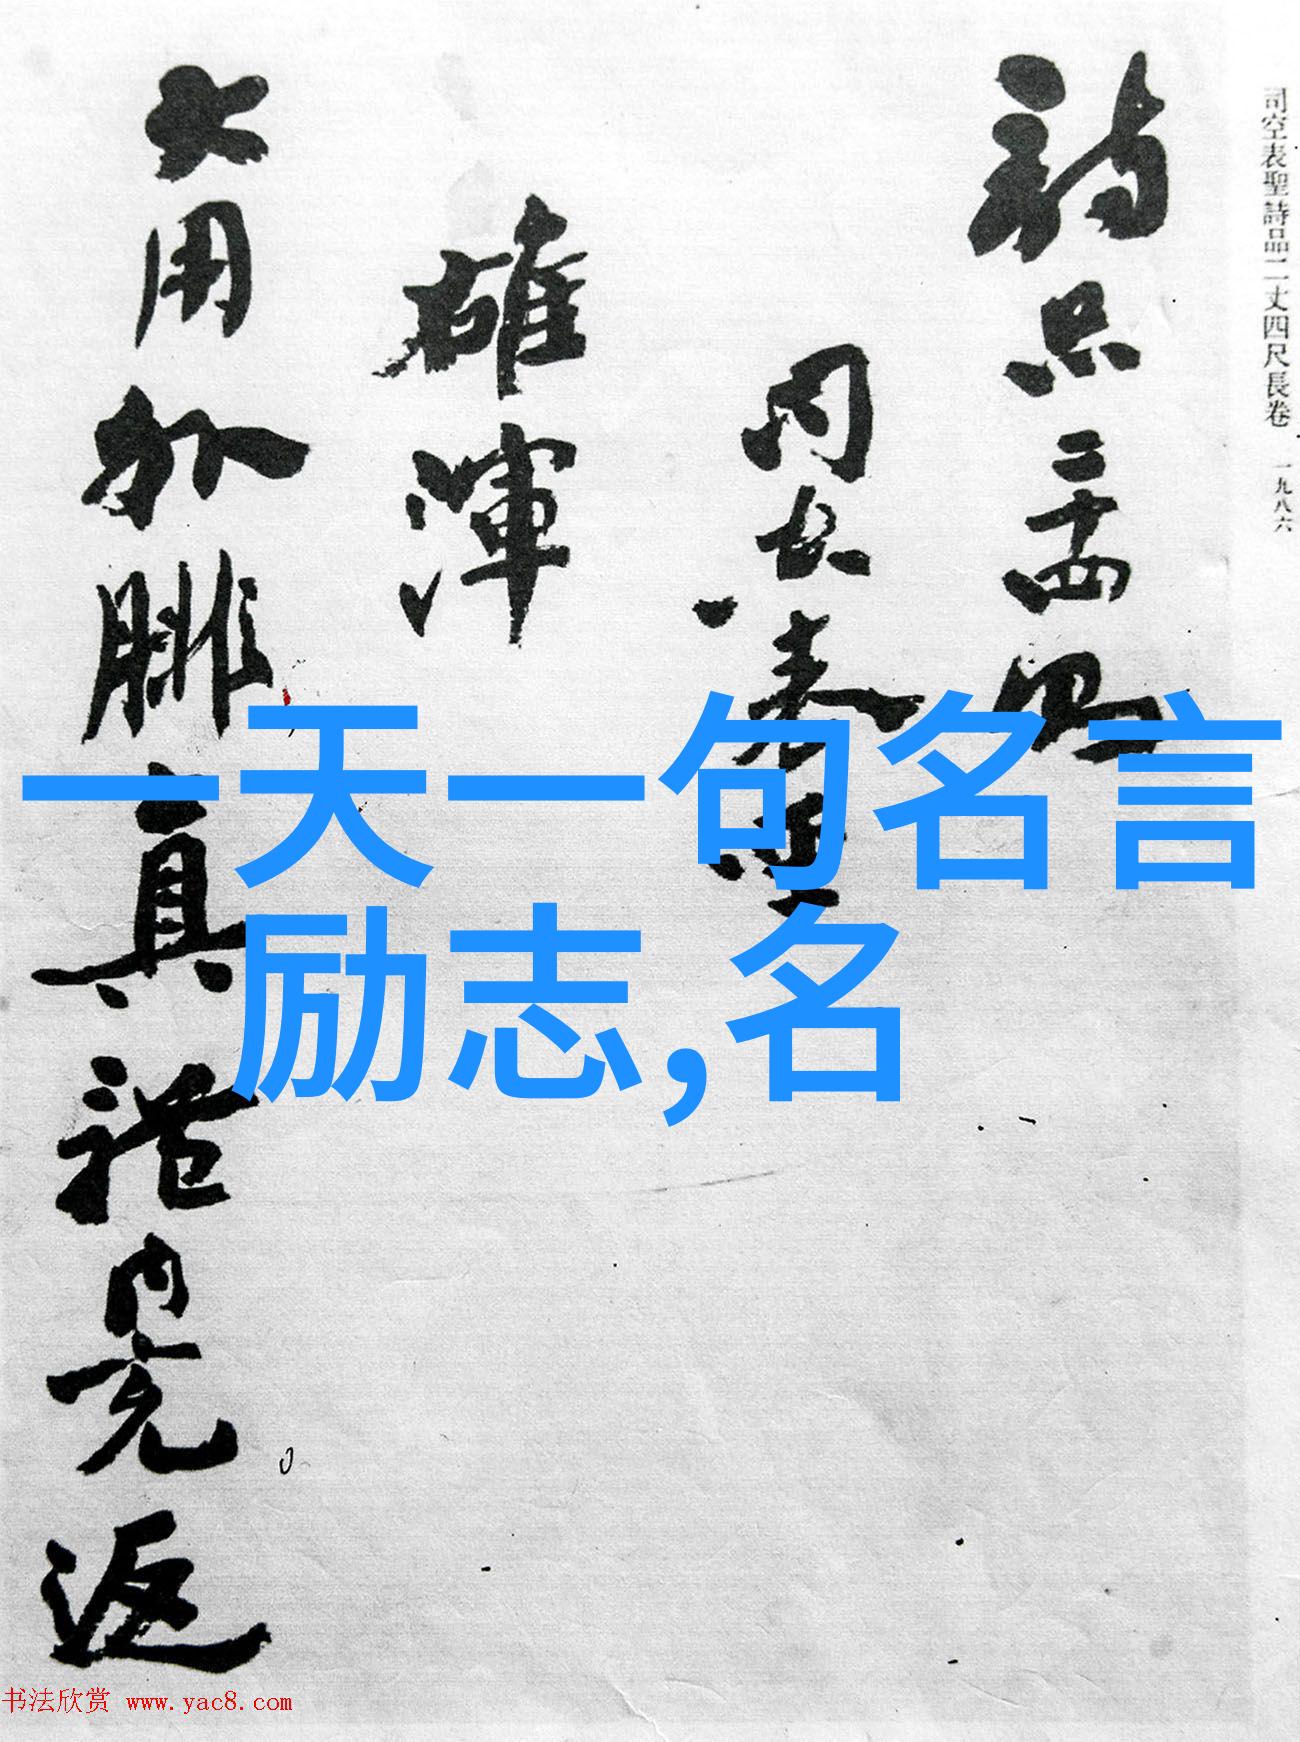 司空表聖詩品二丈四尺長卷 一九八六
詩品二十四則
司空表聖
雄渾
大用外腓真體内充返
一天一句名言
励志,名
书法欣赏 www.yac8.com